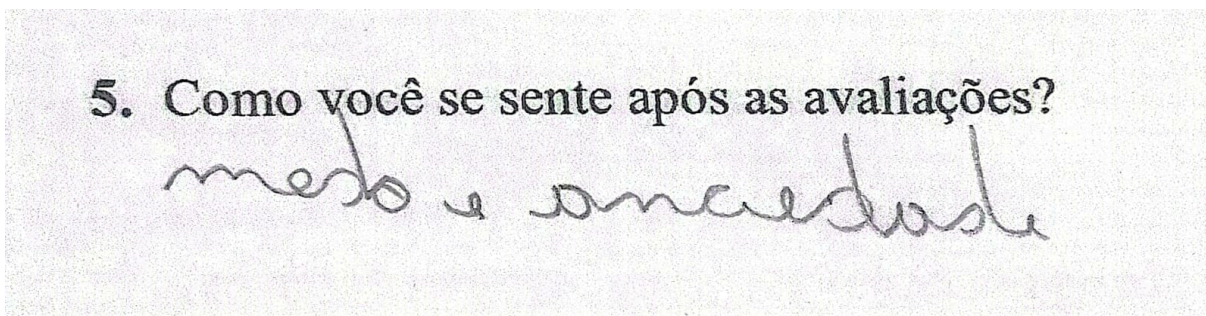 5. Como você se sente após as avaliações?
medo e anciedade